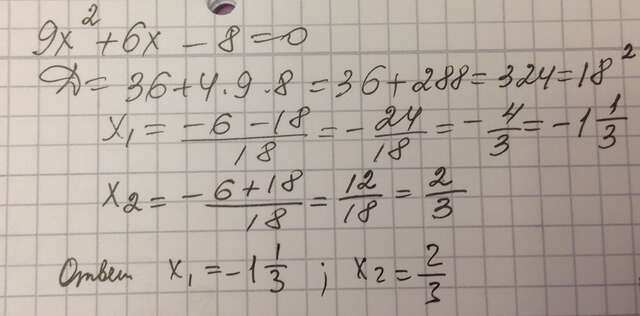 9x² + 6x - 8 = 0
D = 36 + 4 · 9 · 8 = 36 + 288 = 324 = 18²
x₁ = (-6 - 18)/18 = -24/18 = -4/3 = -1 1/3
x₂ = (-6 + 18)/18 = 12/18 = 2/3
Ответ x₁ = -1 1/3 ; x₂ = 2/3